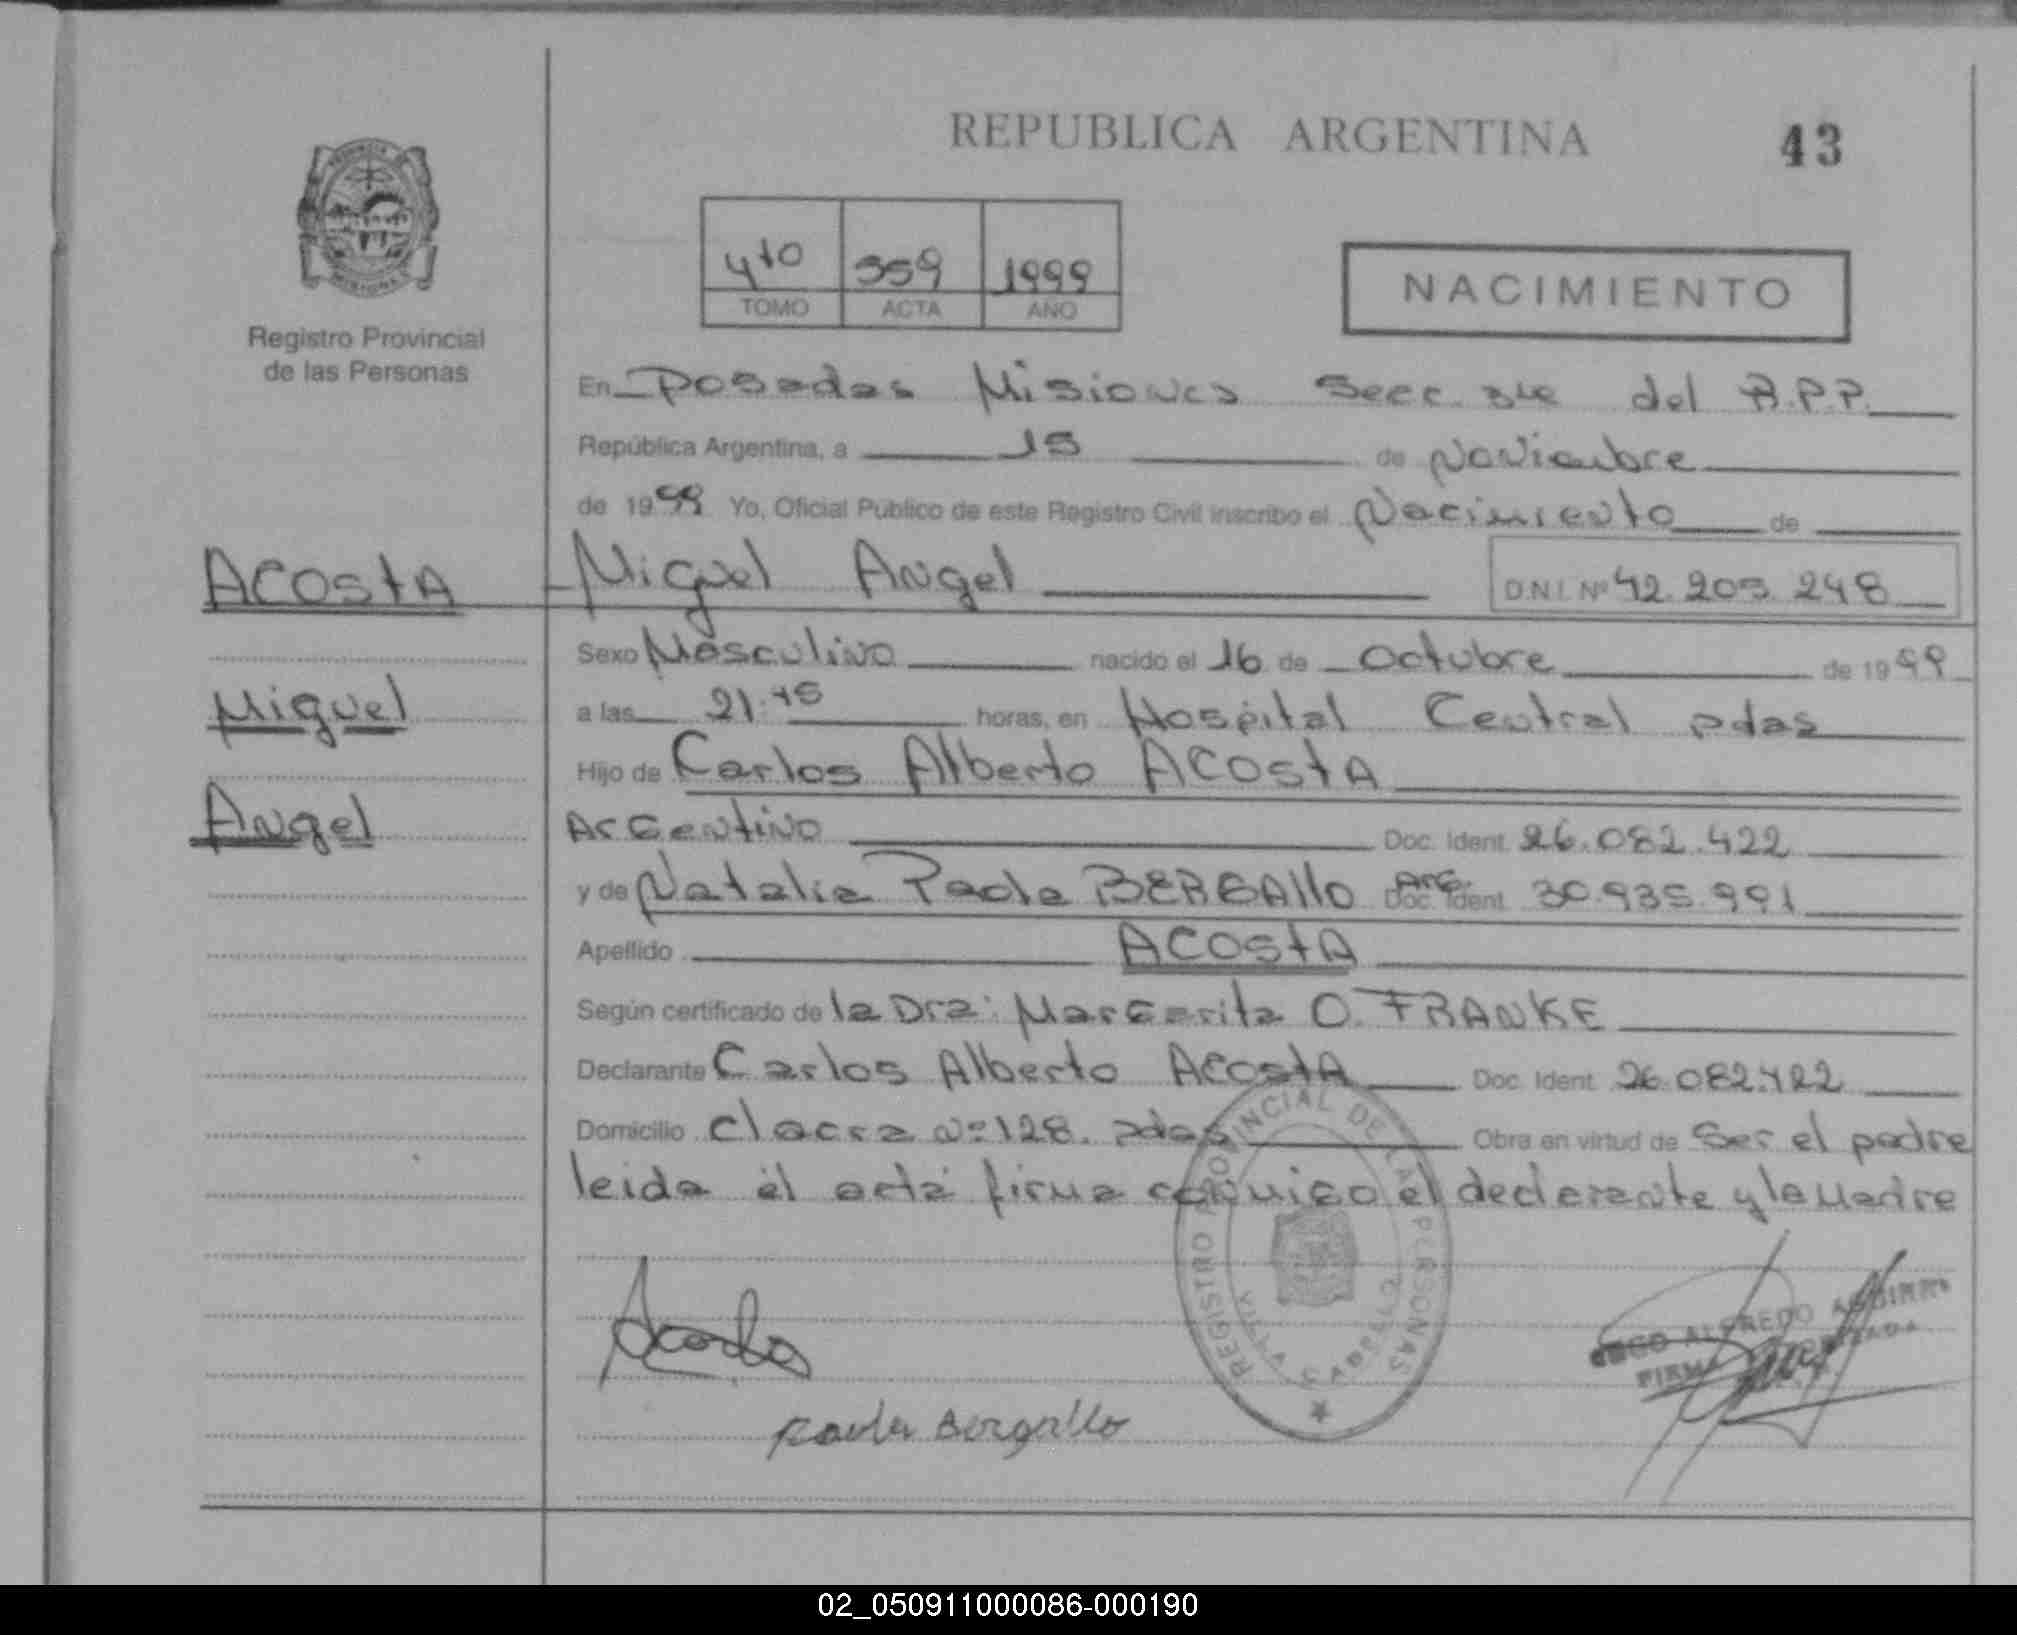 REPUBLICA ARGENTINA 43
4to 359 1999
TOMO ACTA AÑO
NACIMIENTO
Registro Provincial
de las Personas
En Posadas Misiones Secc. 3ra del R.P.P.
República Argentina, a 15 de Noviembre
de 1999 Yo, Oficial Público de este Registro Civil inscribo el Nacimiento de
ACOSTA Miguel Angel D.N.I. Nº 42.203.248
Sexo Masculino nacido el 16 de Octubre de 1999
Miguel a las 21:45 horas, en Hospital Central pdas
Hijo de Carlos Alberto ACOSTA
Angel Argentino Doc. Ident. 26.082.422
y de Natalia Paola BERGAllO Arg. Doc. Ident. 30.935.991
Apellido ACOSTA
Según certificado de la Dra: Margarita O. FRANKE
Declarante Carlos Alberto ACOSTA Doc. Ident. 26.082.422
Domicilio Chacra Nº 128. pdas Obra en virtud de Ser el padre
leida el acta firma conmigo el declarante y la Madre
REGISTRO PROVINCIAL DE LAS PERSONAS
VILLA CABELLO
Acosta
ALFREDO AGUIRRE
FIRMA
Paola Bergallo
02_050911000086-000190